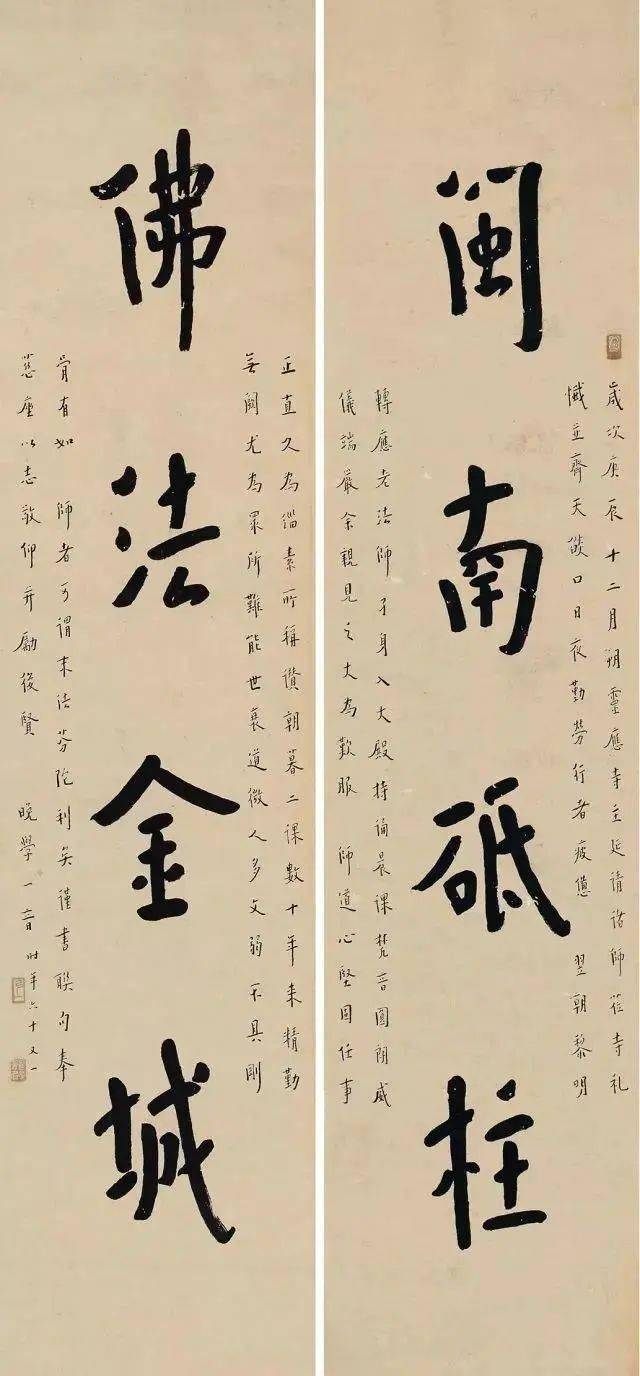 閩南砥柱
歲次庚辰十二月朔靈應寺主延請諸師蒞寺礼
懺並齋天燄口日夜勤勞行者疲憊 翌朝黎明
轉應老法師孑身入大殿持誦晨課梵音圓朗威
儀端嚴余親見之大為歎服 師道心堅固任事
佛法金城
正直久為緇素所稱讚朝暮二課數十年來精勤
無闕尤為眾所難能世衰道微人多文弱不具剛
骨有如 師者可謂末法芬陀利矣謹書聯句奉
慈座以志敬仰并勵後賢 晚學一音時年六十又一